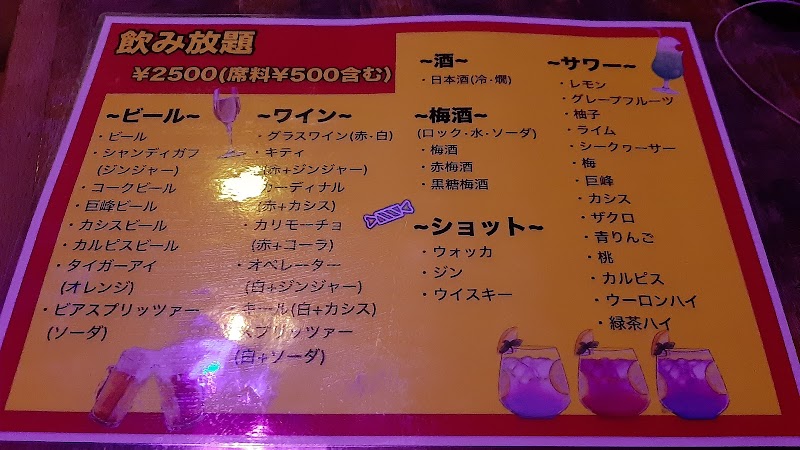 飲み放題
¥2500(席料¥500含む)
~ビール~
・ビール
・シャンディガフ
(ジンジャー)
・コークビール
・巨峰ビール
・カシスビール
・カルピスビール
・タイガーアイ
(オレンジ)
・ビアスプリッツァー
(ソーダ)
~ワイン~
・グラスワイン(赤・白)
・キティ
(赤+ジンジャー)
カーディナル
(赤+カシス)
・カリモーチョ
(赤+コーラ)
・オペレーター
(白+ジンジャー)
・キール(白+カシス)
スプリッツァー
(白+ソーダ)
~酒~
・日本酒(冷・燗)
~梅酒~
(ロック・水・ソーダ)
・梅酒
・赤梅酒
・黒糖梅酒
~ショット~
・ウォッカ
・ジン
・ウイスキー
~サワー~
・レモン
・グレープフルーツ
・柚子
・ライム
・シークヮーサー
・梅
・巨峰
・カシス
・ザクロ
・青りんご
・桃
・カルピス
・ウーロンハイ
・緑茶ハイ